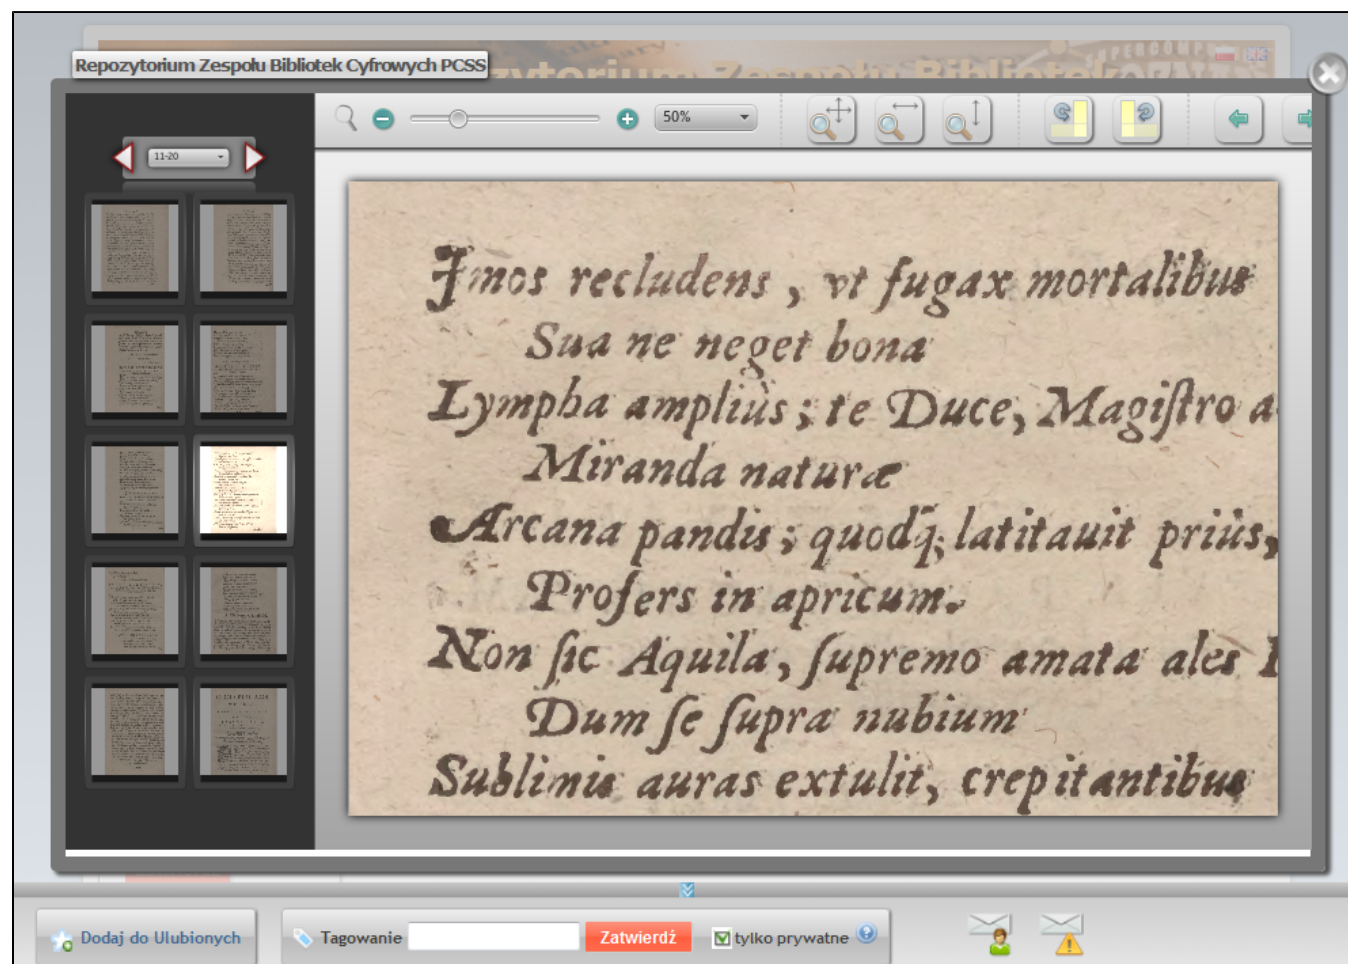 Repozytorium Zespołu Bibliotek Cyfrowych PCSS
50%
11-20
Jmos recludens, vt fugax mortalibus
Sua ne neget bona
Lympha ampliùs; te Duce, Magiſtro a
Miranda naturæ
Arcana pandis; quodq̃; latitauit priùs,
Profers in apricum.
Non ſic Aquila, ſupremo amata ales
Dum ſe ſupra nubium
Sublimis auras extulit, crepitantibus
Dodaj do Ulubionych
Tagowanie
Zatwierdź
tylko prywatne